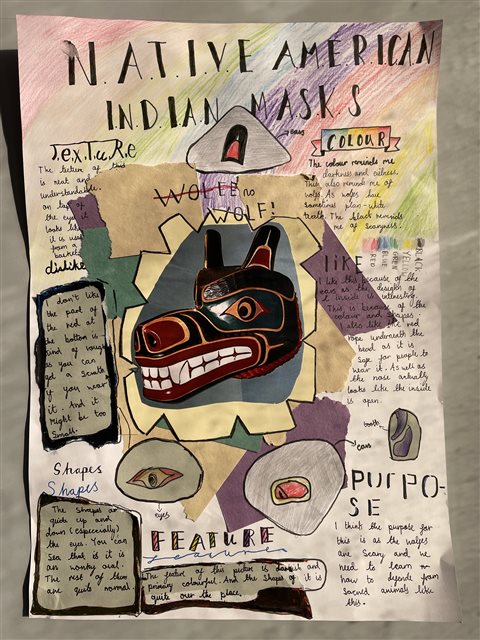 N.A.T.I.V.E AMERICAN
INDIAN MASKS
ears
TexTuRe
The texture of this
is neat and
understandable.
on top of
the eyes it
looks like
it is used
from a
basket
COLOUR
The colour reminds me
darkness and
This also remind me of
wolfs. As wolfs have
sometimes plan-white
teeth. The black reminds
me of scaryness.
WOLFE no
WOLF!
RED
BLUE
GREEN
YELLOW
BLACK
dislike
I don't like
the part of
the red at
the bottom is
kind of rough
as you can
get a
if you wear
it. And it
might be too
small.
like
I like this because of the
ears as the designs of
inside is intresting.
This is because of the
colour and shapes.
I also like the red
rope underneath the
head as it is
safe for people to
wear it. As well as
the nose actually
looks like the inside
is open.
tooth
ears
eyes
Shapes
Shapes
The Shapes are
quite up and
down (especially)
the eye. You can
see that is it is
an wonky oval.
The rest of them
are quite normal.
FEATURE
feature
The feature of this picture is darkish and
primary colourful. And the shape of it is
quite over the place.
PURPO-
SE
I think the purpose for
this is as the wolfes
are scary and we
need to learn
how to defende from
sacred animals like
this.